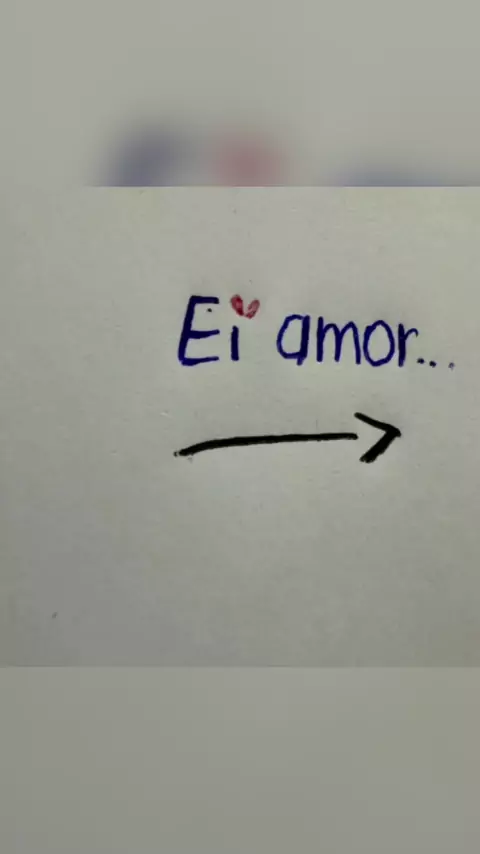 Ei amor...